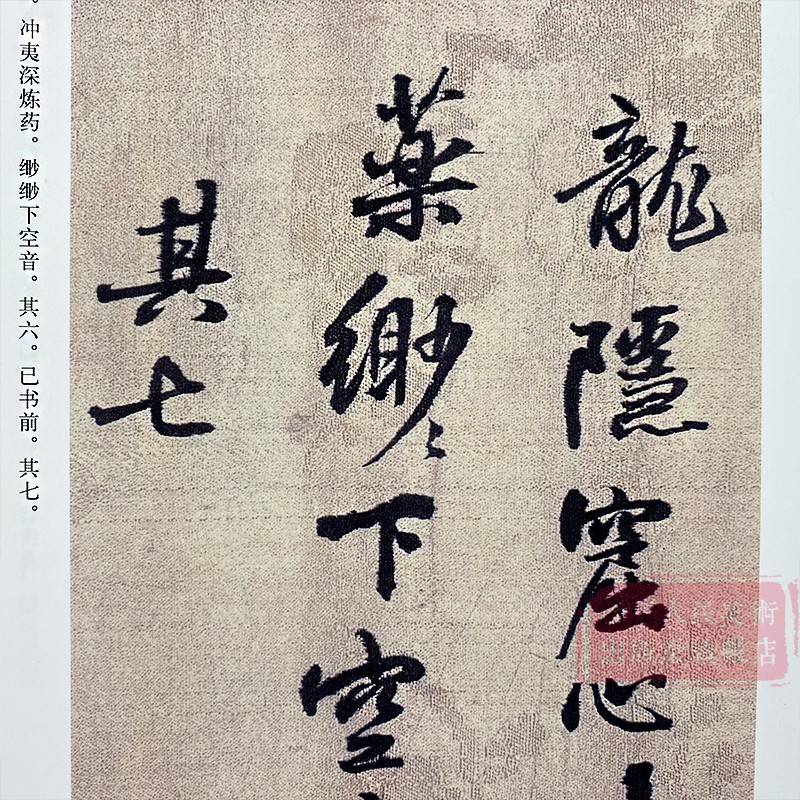 龍隱窟心
藥緲〻下空
其七
。冲夷深炼药。缈缈下空音。其六。已书前。其七。